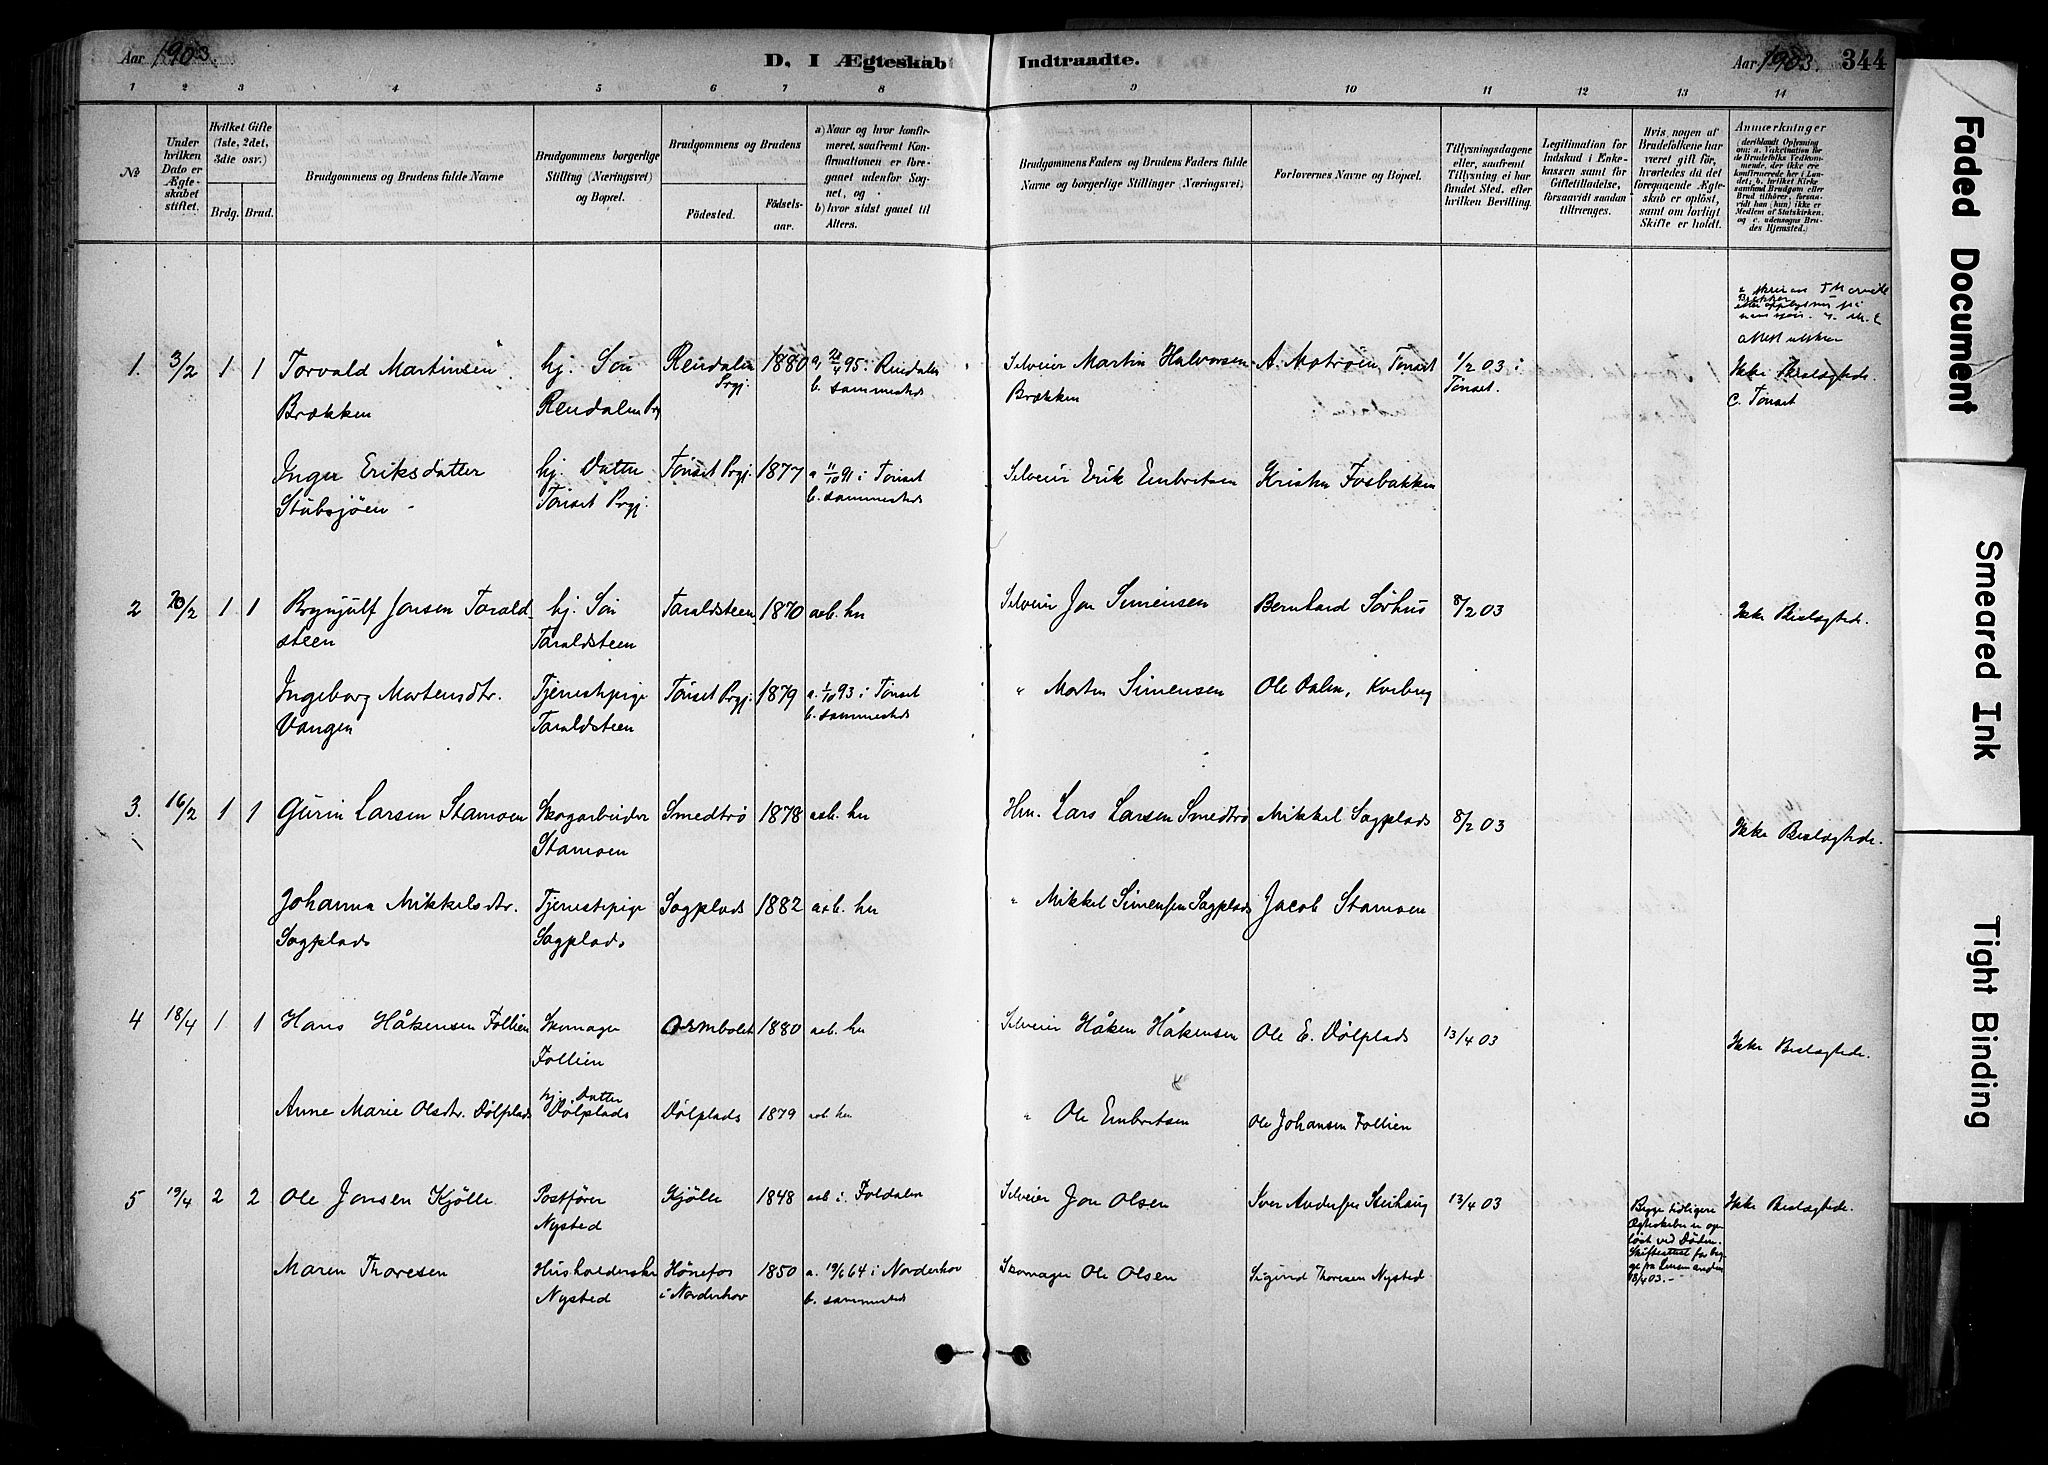 Aar 1903.
D. I Ægteskab Indtraadte.
Aar 1903.
344
1 2 3 4 5 6 7 8 9 10 11 12 13 14
No
Under hvilken Dato er Ægteskabet stiftet.
Hvilket Gifte (1ste, 2det, 3die osv.)
Brdg. Brud.
Brudgommens og Brudens fulde Navne
Brudgommens borgerlige Stilling (Næringsvei) og Bopæl.
Brudgommens og Brudens
Födested.
Födselsaar.
a) Naar og hvor konfirmeret, saafremt Konfirmationen er foregaaet udenfor Sognet, og
b) hvor sidst gaaet til Alters.
Brudgommens Faders og Brudens Faders fulde Navne og borgerlige Stillinger (Næringsvei)
Forlovernes Navne og Bopæl.
Tillysningsdagene eller, saafremt Tillysning ei har fundet Sted, efter hvilken Bevilling.
Legitimation for Indskud i Enkekassen samt for Giftetilladelse, forsaavidt saadan tiltrænges.
Hvis nogen af Brudefolkene har været gift før, hvorledes da det foregaaende Ægteskab er oplöst, samt om lovligt Skifte er holdt.
Anmærkninger
(deriblandt Oplysning om: a. Vakcination for de Brudefolks Vedkommende, der ikke ere konfirmerede her i Landet; b. hvilket Kirkesamfund Brudgom eller Brud tilhörer, forsaavidt han (hun) ikke er Medlem af Statskirken, og c. udensogns Brudes Hjemsted.)
1. 3/2 1 1 Torvald Martinsen Brækken
hj. Sön Rendalen Prgj
Rendalen Prgj. 1880
Rendalen b. sammesteds
Selveier Martin Halvorsen Brækken
A. Motröen, Tönset
1/2 03 i Tönset.
Ikke Beslægtede.
C. Tönset
Inger Eriksdatter Stubsjöen
hj. Datter Tönset Prgj.
Tönset Prgj. 1877
a. 11/10 91 i Tönset b. sammesteds
Selveier Erik Embretsen
Kristen Fosbakken
2 20/2 1 1 Brynjulf Jonsen Taraldsteen
hj. Sön Taraldsteen
Taraldsteen 1870 aab. her
Selveier Jon Simensen
Bernhard Sörhus
8/2 03
Ikke Beslægtede.
Ingeborg Mortensdtr. Vangen
Tjenestepige Taraldsteen
Tönset Prgj. 1879
a. 1/10 93 i Tönset b. sammesteds
" Morten Simensen
Ole Dalen,
3. 16/2 1 1 Gurin Larsen Stamoen
Skogarbeider Stamoen
Smedtrö 1878 aab. her
Hm. Lars Larsen Smedtrö
Mikkel Sagplads
8/2 03
Ikke Beslægtede.
Johanna Mikkelsdtr. Sagplads
Tjenestepige Sagplads
Sagplads 1882 aab. her
" Mikkel Simensen Sagplads
Jacob Stamoen
4 18/4 1 1 Hans Håkensen Follien
Skomager Follien
Ormbolet 1880 aab. her
Selveier Håken Håkensen
Ole E. Dölplads
13/4 03
Ikke Beslægtede.
Anne Marie Olsdtr. Dölplads
hj. Datter Dölplads
Dölplads 1879 aab. her
" Ole Embretsen
Ole Johansen Follien
5 19/4 2 2 Ole Jonsen Kjölle
Postförer Nysted
Kjölle 1848 aab i. Foldalen
Selveier Jon Olsen
Iver Andersen Steihaug
13/4 03
Begge tidligere Ægteskaber er oplöst ved Döden. Skifteattest for begge fra Lensmanden 18/4 03.
Ikke Beslægtede.
Maren Thoresen
Husholderske Nysted
Hönefos i Norderhov 1850
a. 19/6 64 i Norderhov b. sammesteds
Skomager Ole Olsen
Sigurd Thoresen Nysted
Faded Document
Smeared Ink
Tight Binding